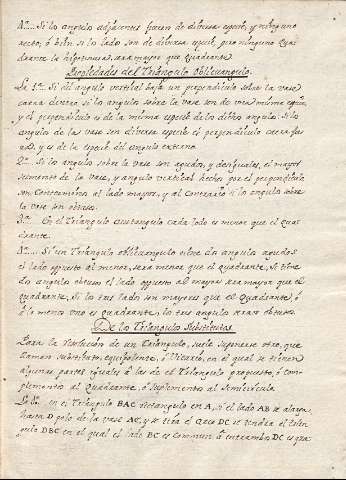 4ª.... Si los angulos adjacentes fueren de diversa especie, y ninguno
recto; ó bien si los lados son de diversa especie, pero ninguno Qua-
drante la hipotenusa, sera mayor que Quadrante.
Propiedades del Triángulo Oblicuangulo.
La 1ª... Si del angulo vertical baja un perpendiculo sobre la vase
caerá dentro si los angulos sobre la vase son de una misma especie,
y el perpendiculo es de la misma especie de los dichos angulos. Si los
angulos de la vase son diversa especie el perpendiculo caera fue-
ra, y es de la especie del angulo externo.
2ª... Si los angulos sobre la vase son agudos, y desiguales, el mayor
segmento de la vase, y angulo vertical hechos por el perpendiculo
son concernimos al lado mayor, y al contrario si los angulos sobre
la vase son obtusos.
3ª... En el Triangulo acutangulo cada lado es menor que el Qua-
drante.
4ª.... Si un Triángulo oblicuangulo tiene dos angulos agudos
el lado oppuesto al menor, sera menor que el Quadrante, si tiene
dos angulos obtusos el lado oppuesto al mayor sera mayor que el
Quadrante, si los tres lados son mayores que el Quadrante, ó
ó lo menos uno es Quadrante, los tres angulos seran obtusos.
De los Triangulos Substitutos.
Para la resolucion de un Triángulo, suele suponerse otro, que
llaman substituto, equipolente, ó Vicario, en el qual se tienen
algunas partes iguales á las de el Triangulo propuesto, ó com-
plementos al Quadrante, ó suplementos al Semicirculo.
La 1ª... en el Triángulo BAC rectangulo en A, si el lado AB se alarga
hasta D polo de la vase AC, y se tira el arco DC se tendra el trian-
gulo DBC en el qual el lado BC es comun á entrambos DC es qua-